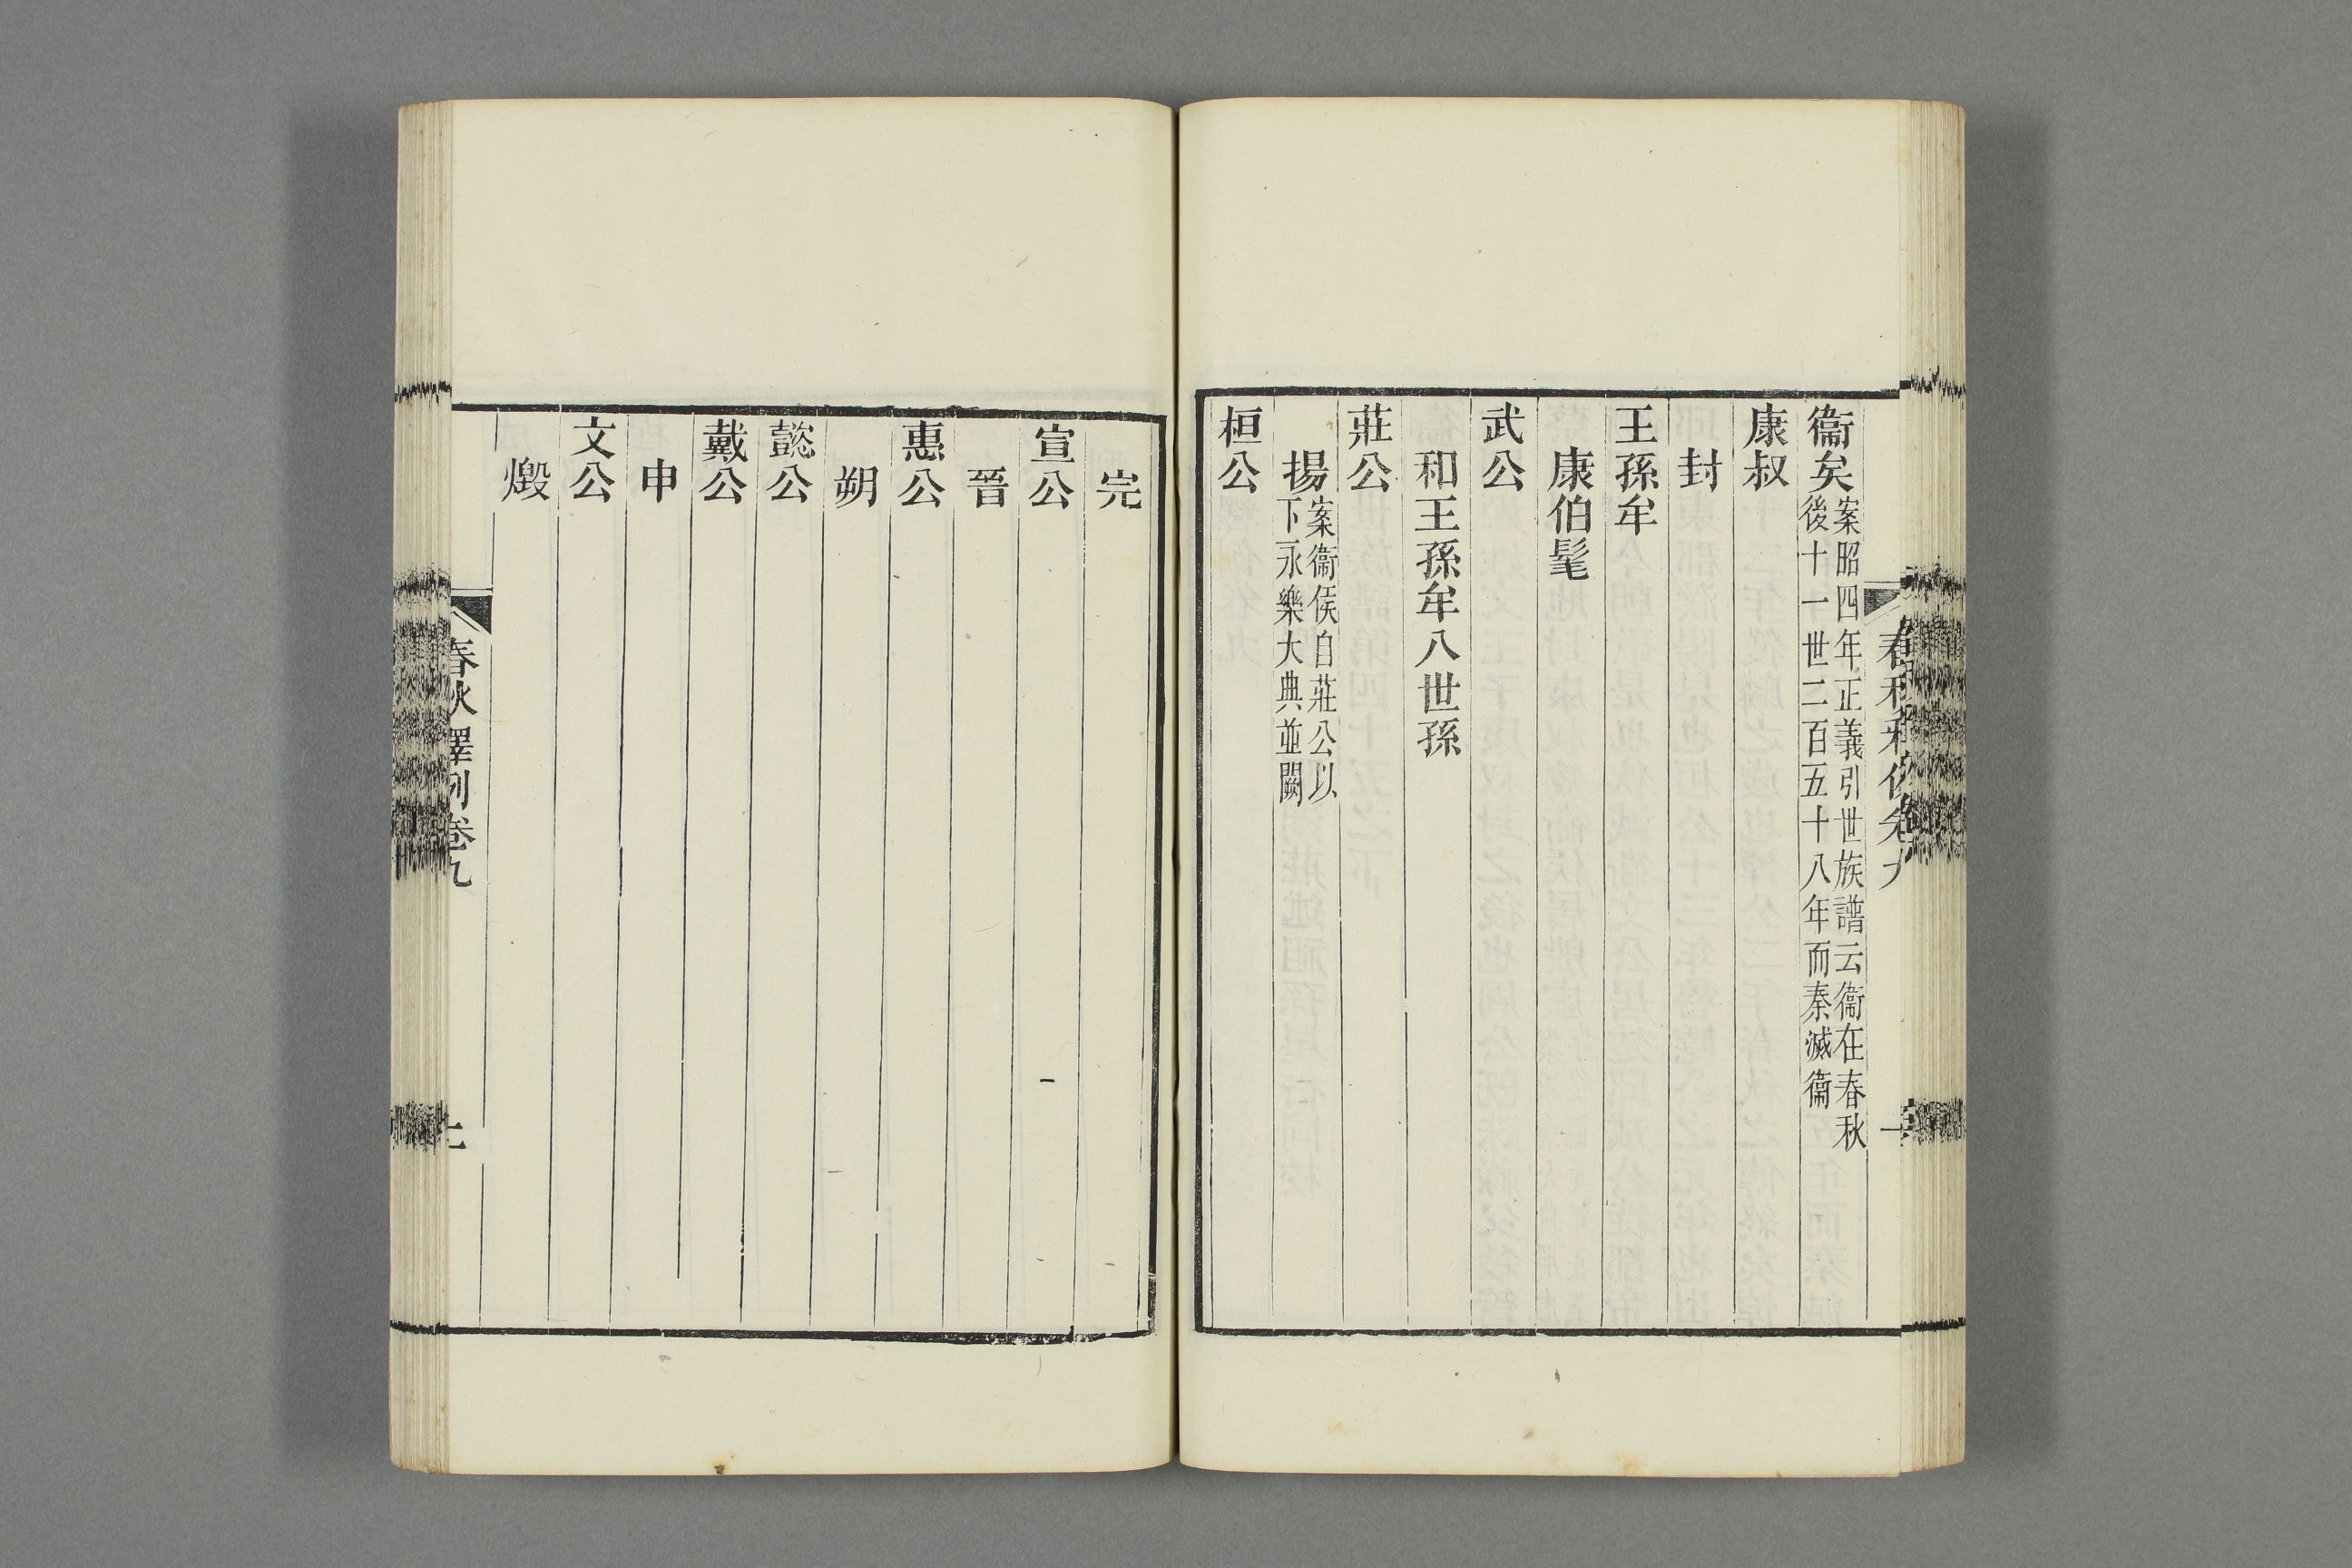 衞矣案昭四年正義引世族譜云衞在春秋
後十一世二百五十八年而秦滅衞
康叔
封
王孫牟
康伯髦
武公
和王孫牟八世孫
莊公
揚案衞侯自莊公以
下永樂大典並闕
桓公
完
宣公
晉
惠公
朔
懿公
戴公
申
文公
燬
春秋釋例卷九